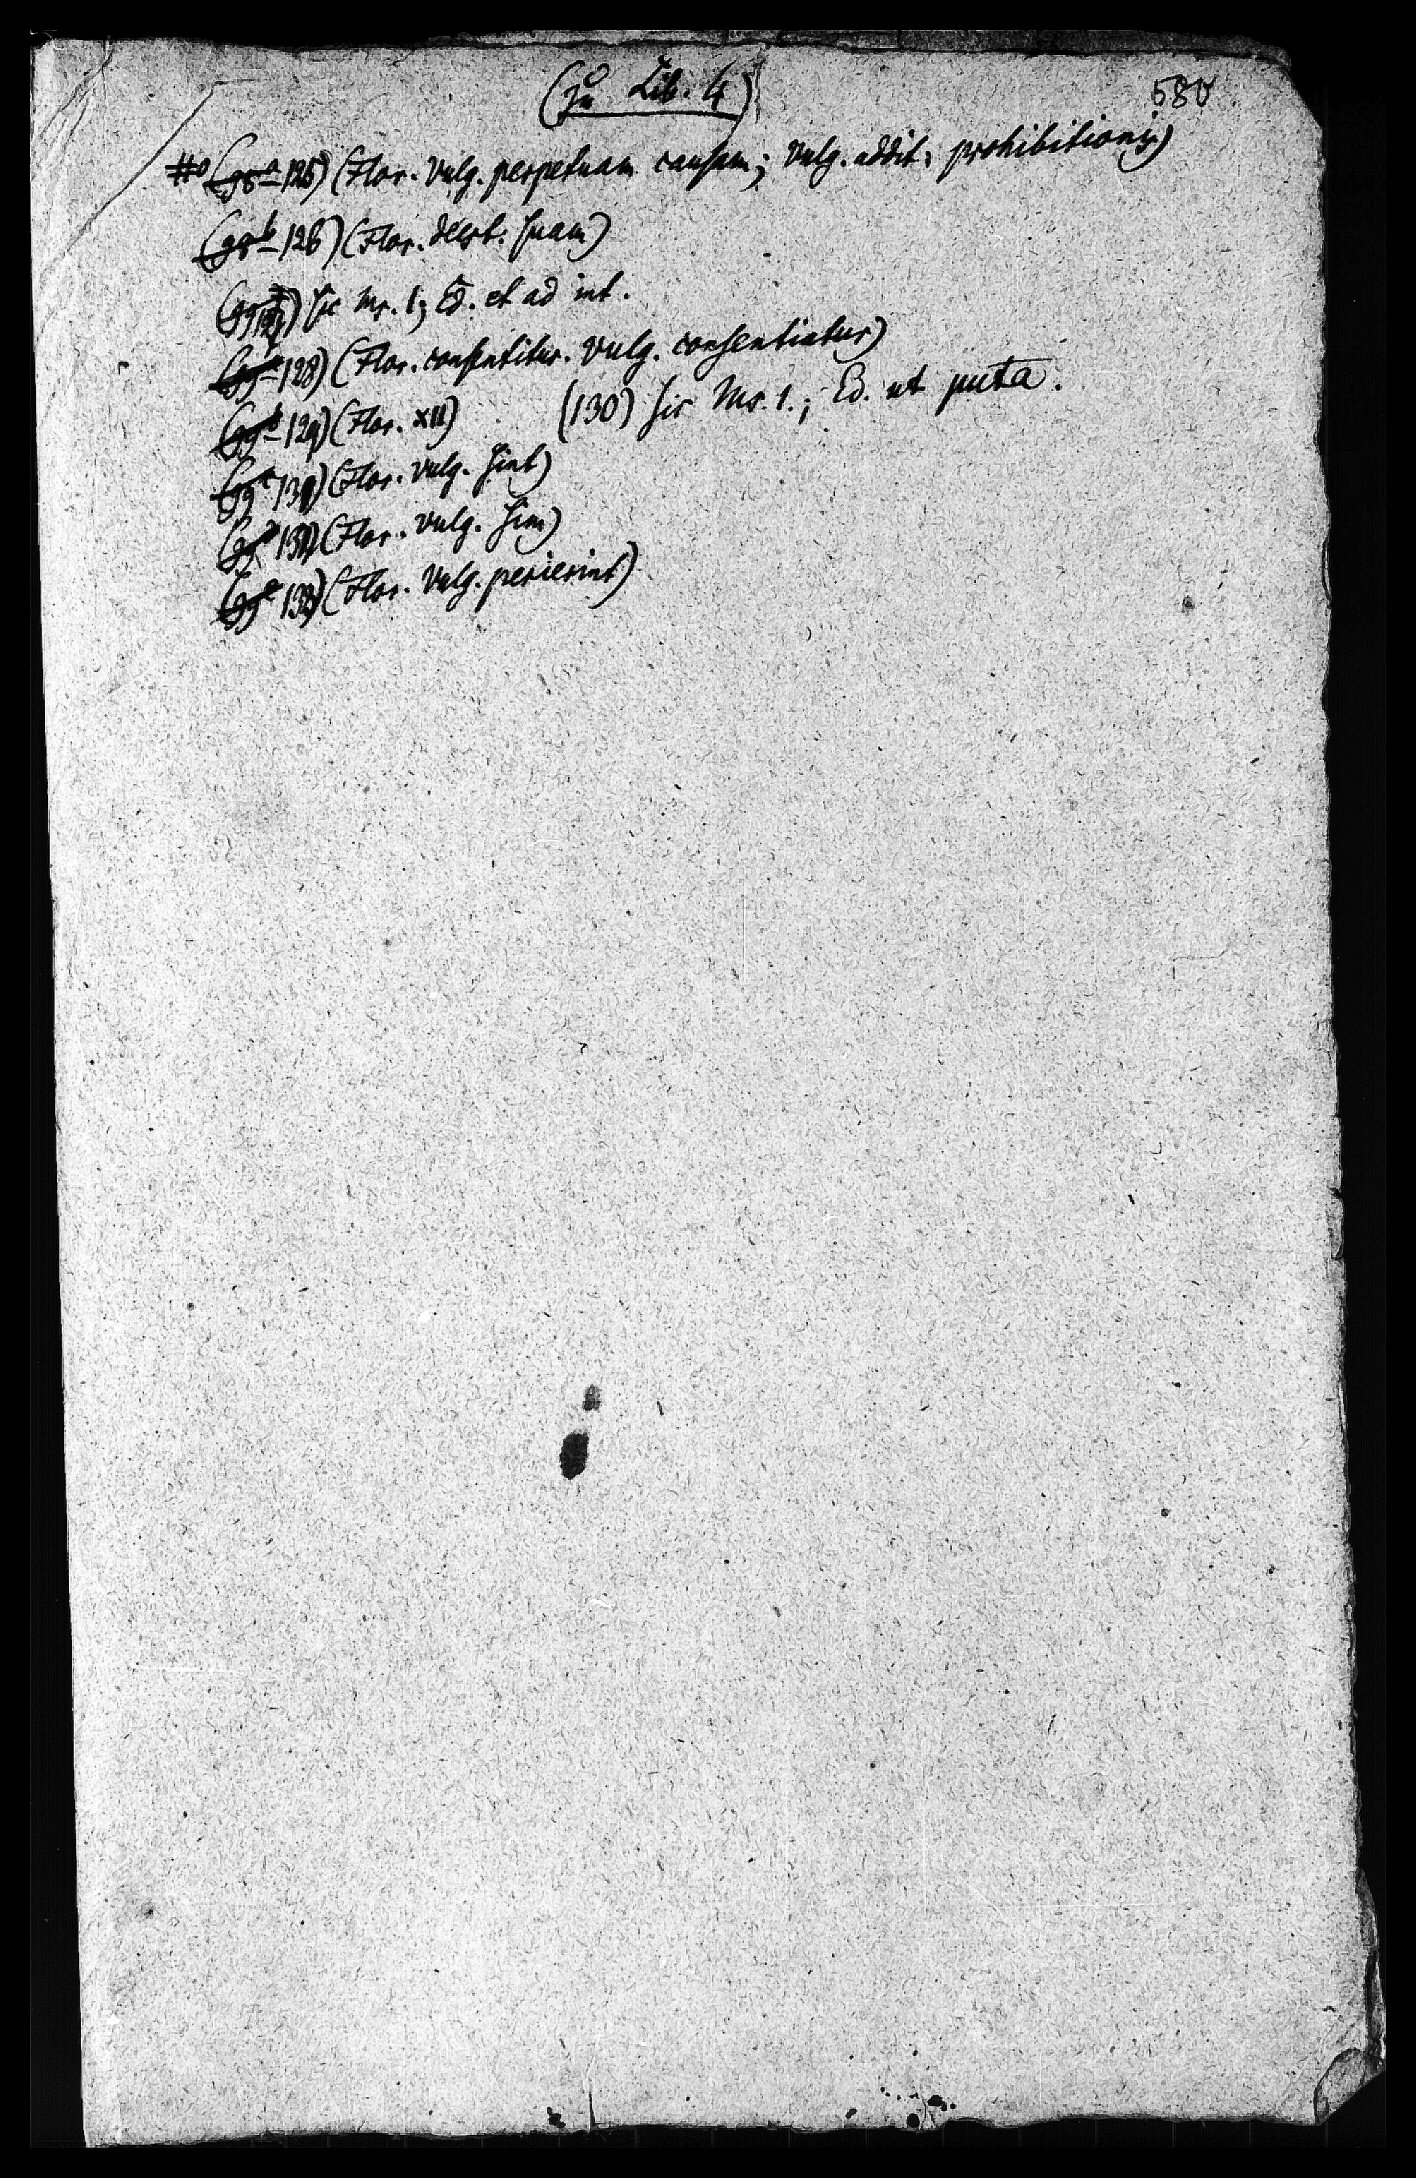 (zu Lib. 4)
580
(98a 125) (Flor. Vulg. perpetuam causam; Vulg. addit: prohibitionis)
(98b 126) (Flor. deest: suam)
(99 127) sic Ms. 1; Ed. et ad int.
(99a 128) (Flor. consentitur. Vulg. consentiatur)
(99b 129) (Flor. XII) (130) sic Ms. 1.; Ed. ut puta.
(99c 131) (Flor. Vulg. sint)
(99d 132) (Flor. Vulg. sim)
(99e 133) (Flor. Vulg. perierint)